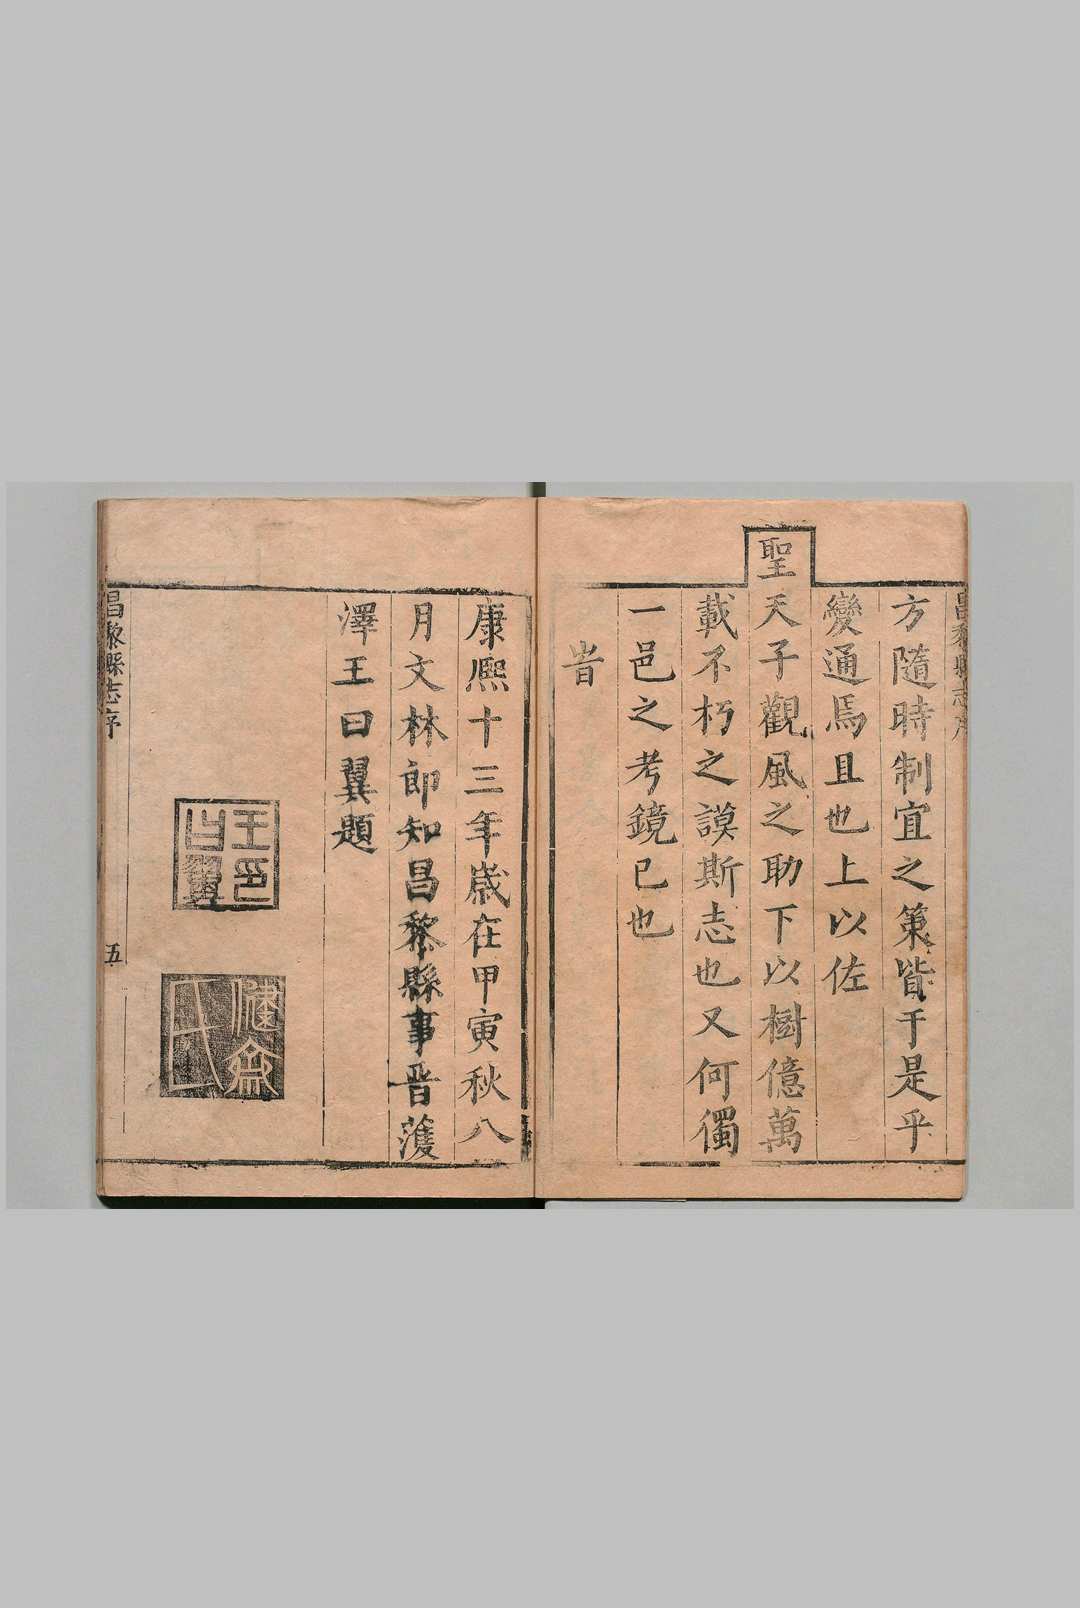 方隨時制宜之策皆于是乎
變通焉且也上以佐
聖天子觀風之助下以樹億萬
載不朽之謨斯志也又何獨
一邑之考鏡已也
旹
康熙十三年歲在甲寅秋八
月文林郎知昌黎縣事晉濩
澤王曰翼題
王印曰翼
昌黎縣志序
五